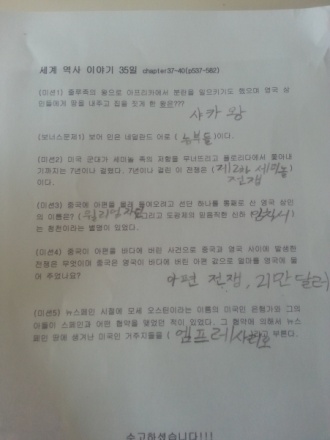 세계 역사 이야기 35일 chapter37-40(p537-582)
(미션1) 줄루족의 왕으로 아프리카에서 분란을 일으키기도 했으며 영국 상
인들에게 땅을 내주고 집을 짓게 한 왕은???
샤카 왕
(보너스문제1) 보어 인은 네덜란드 어로 (농부들)이다.
(미션2) 미국 군대가 세미놀 족의 저항을 무너뜨리고 플로리다에서 쫓아내
기까지는 7년이나 걸렸다. 7년이나 걸린 이 전쟁은 (제2차 세미놀
전쟁
이다.
(미션3) 중국에 아편을 몰래 들여오려고 선단 하나를 통째로 산 영국 상인
의 이름은? (윌리엄 자딘)그리고 도광제의 믿음직한 신하
는 청천이라는 별명이 있었다.
(미션4) 중국이 아편을 바다에 버린 사건으로 중국과 영국 사이에 발생한
전쟁은 무엇이며 중국은 영국이 바다에 버린 아편 값으로 얼마를 영국에 물
어 주었나요?
아편 전쟁, 21만 달러
(미션5) 뉴스페인 시절에 모세 오스틴이라는 이름의 미국인 은행가와 그의
아들이 스페인과 어떤 협약을 맺었던 적이 있었다. 그 협약에 의해서 뉴스
페인 땅에 생겨난 미국인 거주지들을 (엠프레사리오)라고 부른다.
수고하셨습니다!!!